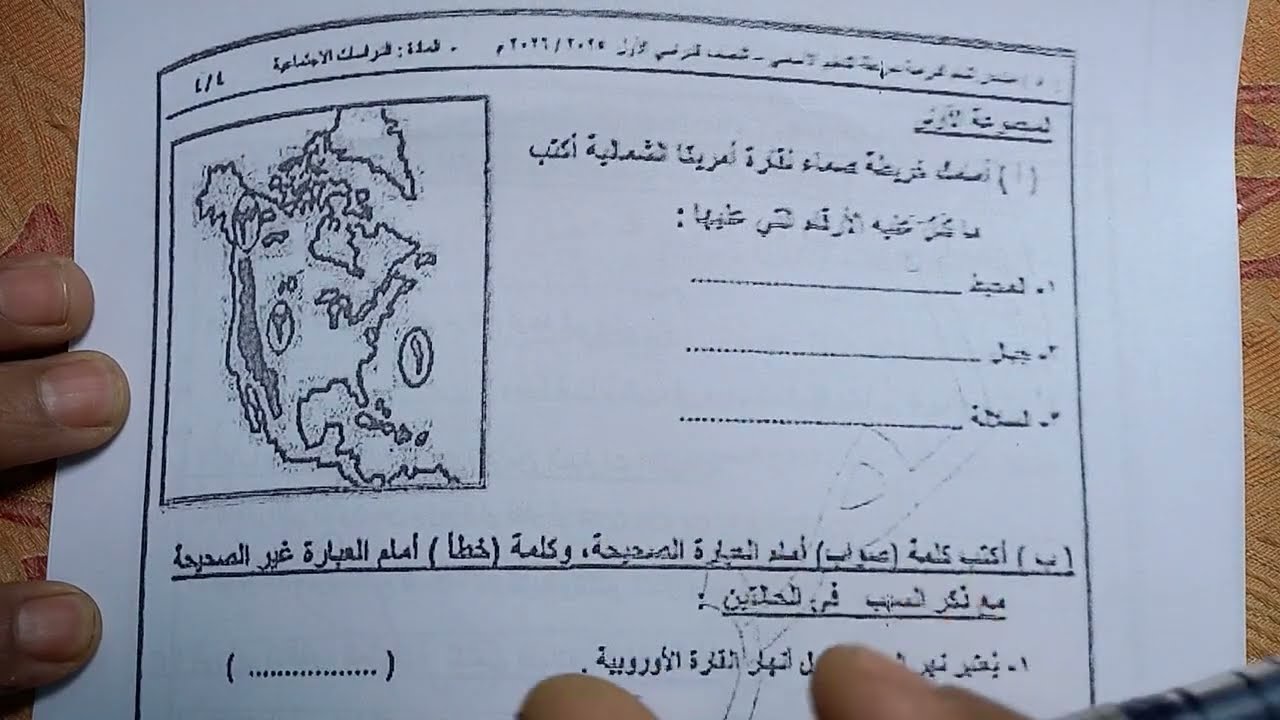 المادة : الدراسات الاجتماعية - الصف الدراسي الأول ٢٠٢٥ / ٢٠٢٦م
٤/٤
المجموعة الأولى
( أ ) أمامك خريطة صماء لقارة أمريكا الشمالية أكتب
ما تدل عليه الأرقام التي عليها :
١- المحيط ....................
٢- جبال ....................
٣- السلالة ....................
١
٢
٣
( ب ) أكتب كلمة (صواب) أمام العبارة الصحيحة، وكلمة (خطأ ) أمام العبارة غير الصحيحة
مع ذكر السبب في الحالتين :
١- يُعتبر نهر أنهار القارة الأوروبية . ( ................ )